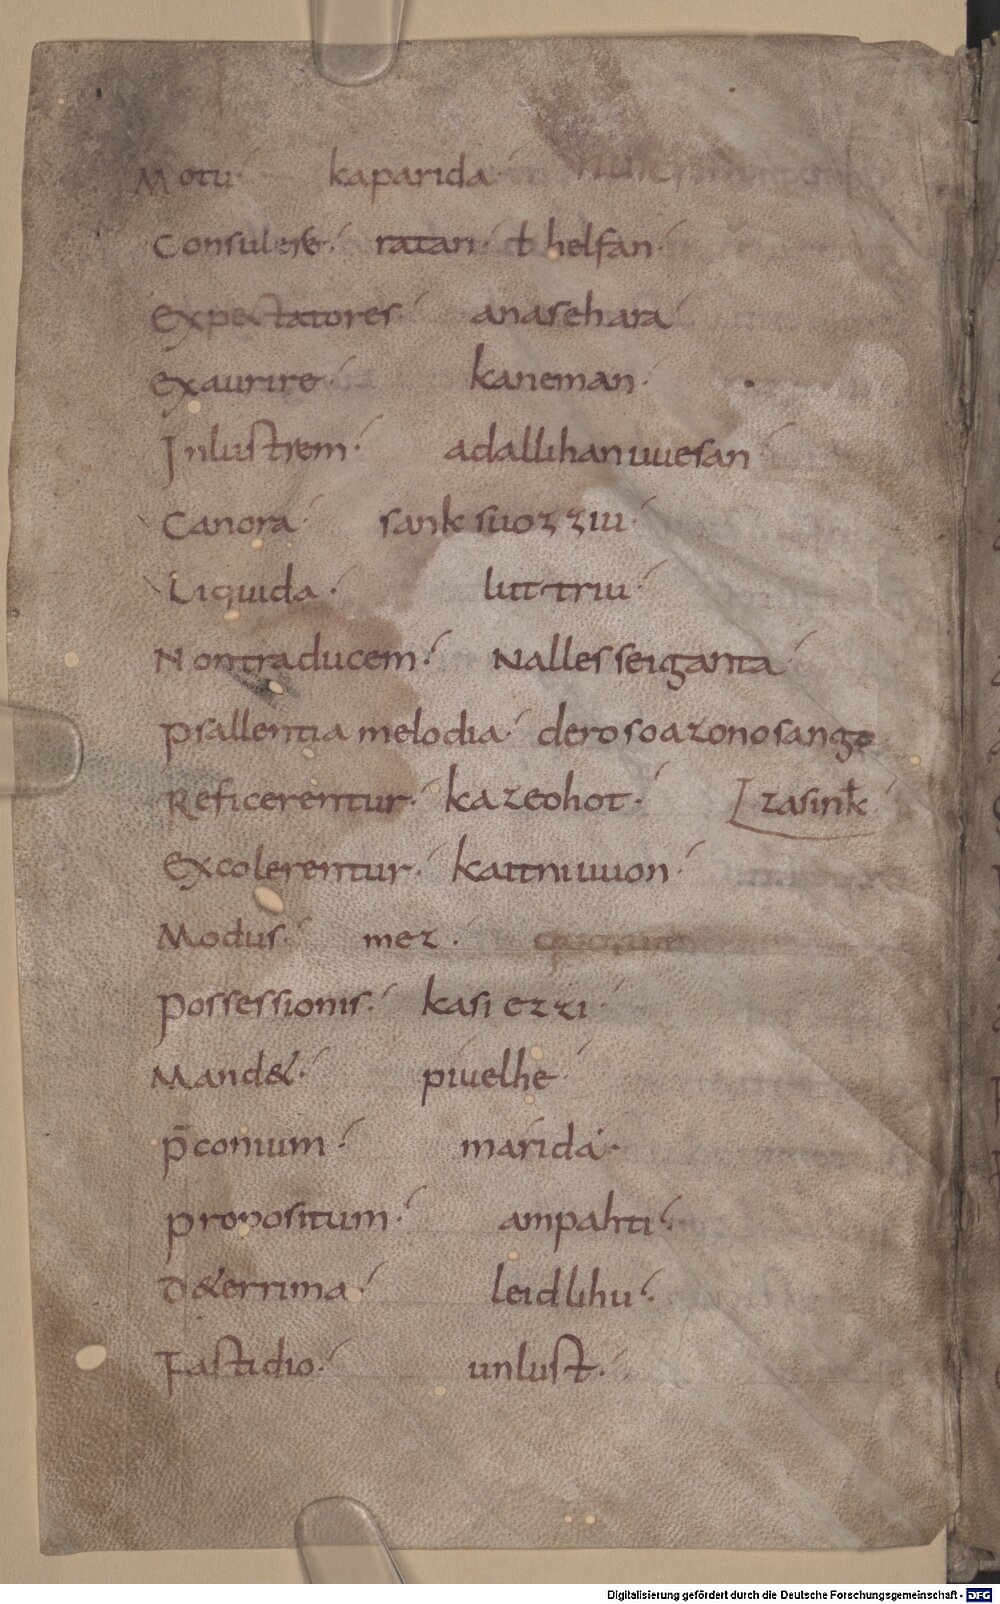 Motu· kaparida·
Consulere· ratan· ł helfan·
Expectatores· anasehara
Exaurire· kaneman·
Inlustrem· adallihan uuesan
Canora· sank suozziu·
Liquida· luttriu·
Nontraducem· Nalles seiganta
psallentia melodia· dero soazono sango
Reficerentur· kazeohot· zasinꝉ
Excolerentur· kaitniuuon
Modus· mez·
possessionis· kasiezzi
Mand&· piuelhe
p̄conium· marida·
propositum· ampahti·
D&errima· leidlihu·
Fastidio· unlust·
Digitalisierung gefördert durch die Deutsche Forschungsgemeinschaft - DFG